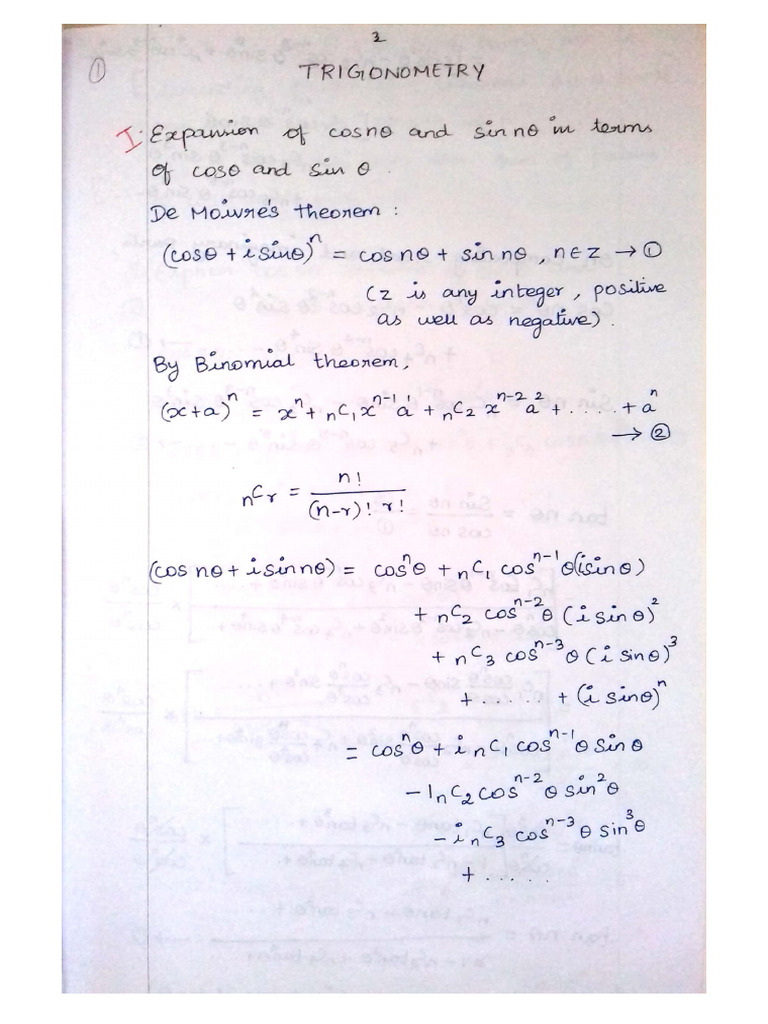 3
① TRIGONOMETRY
I. Expansion of cosnθ and sin nθ in terms
of cosθ and sin θ.
De Moivre's theorem :
(cosθ + i sinθ)ⁿ = cos nθ + sin nθ , n∈z → ①
(z is any integer , positive
as well as negative).
By Binomial theorem,
(x+a)ⁿ = xⁿ + nC₁ xⁿ⁻¹a¹ + nC₂ xⁿ⁻²a² + ..... + aⁿ
→ ②
nCr = n! / (n-r)! r!
(cos nθ + i sin nθ) = cosⁿθ + nC₁ cosⁿ⁻¹θ(i sin θ)
+ nC₂ cosⁿ⁻²θ (i sin θ)²
+ nC₃ cosⁿ⁻³θ (i sinθ)³
+ ..... + (i sinθ)ⁿ
= cosⁿθ + i nC₁ cosⁿ⁻¹θ sinθ
- 1nC₂ cosⁿ⁻²θ sin²θ
- i nC₃ cosⁿ⁻³θ sin³θ
+ .....